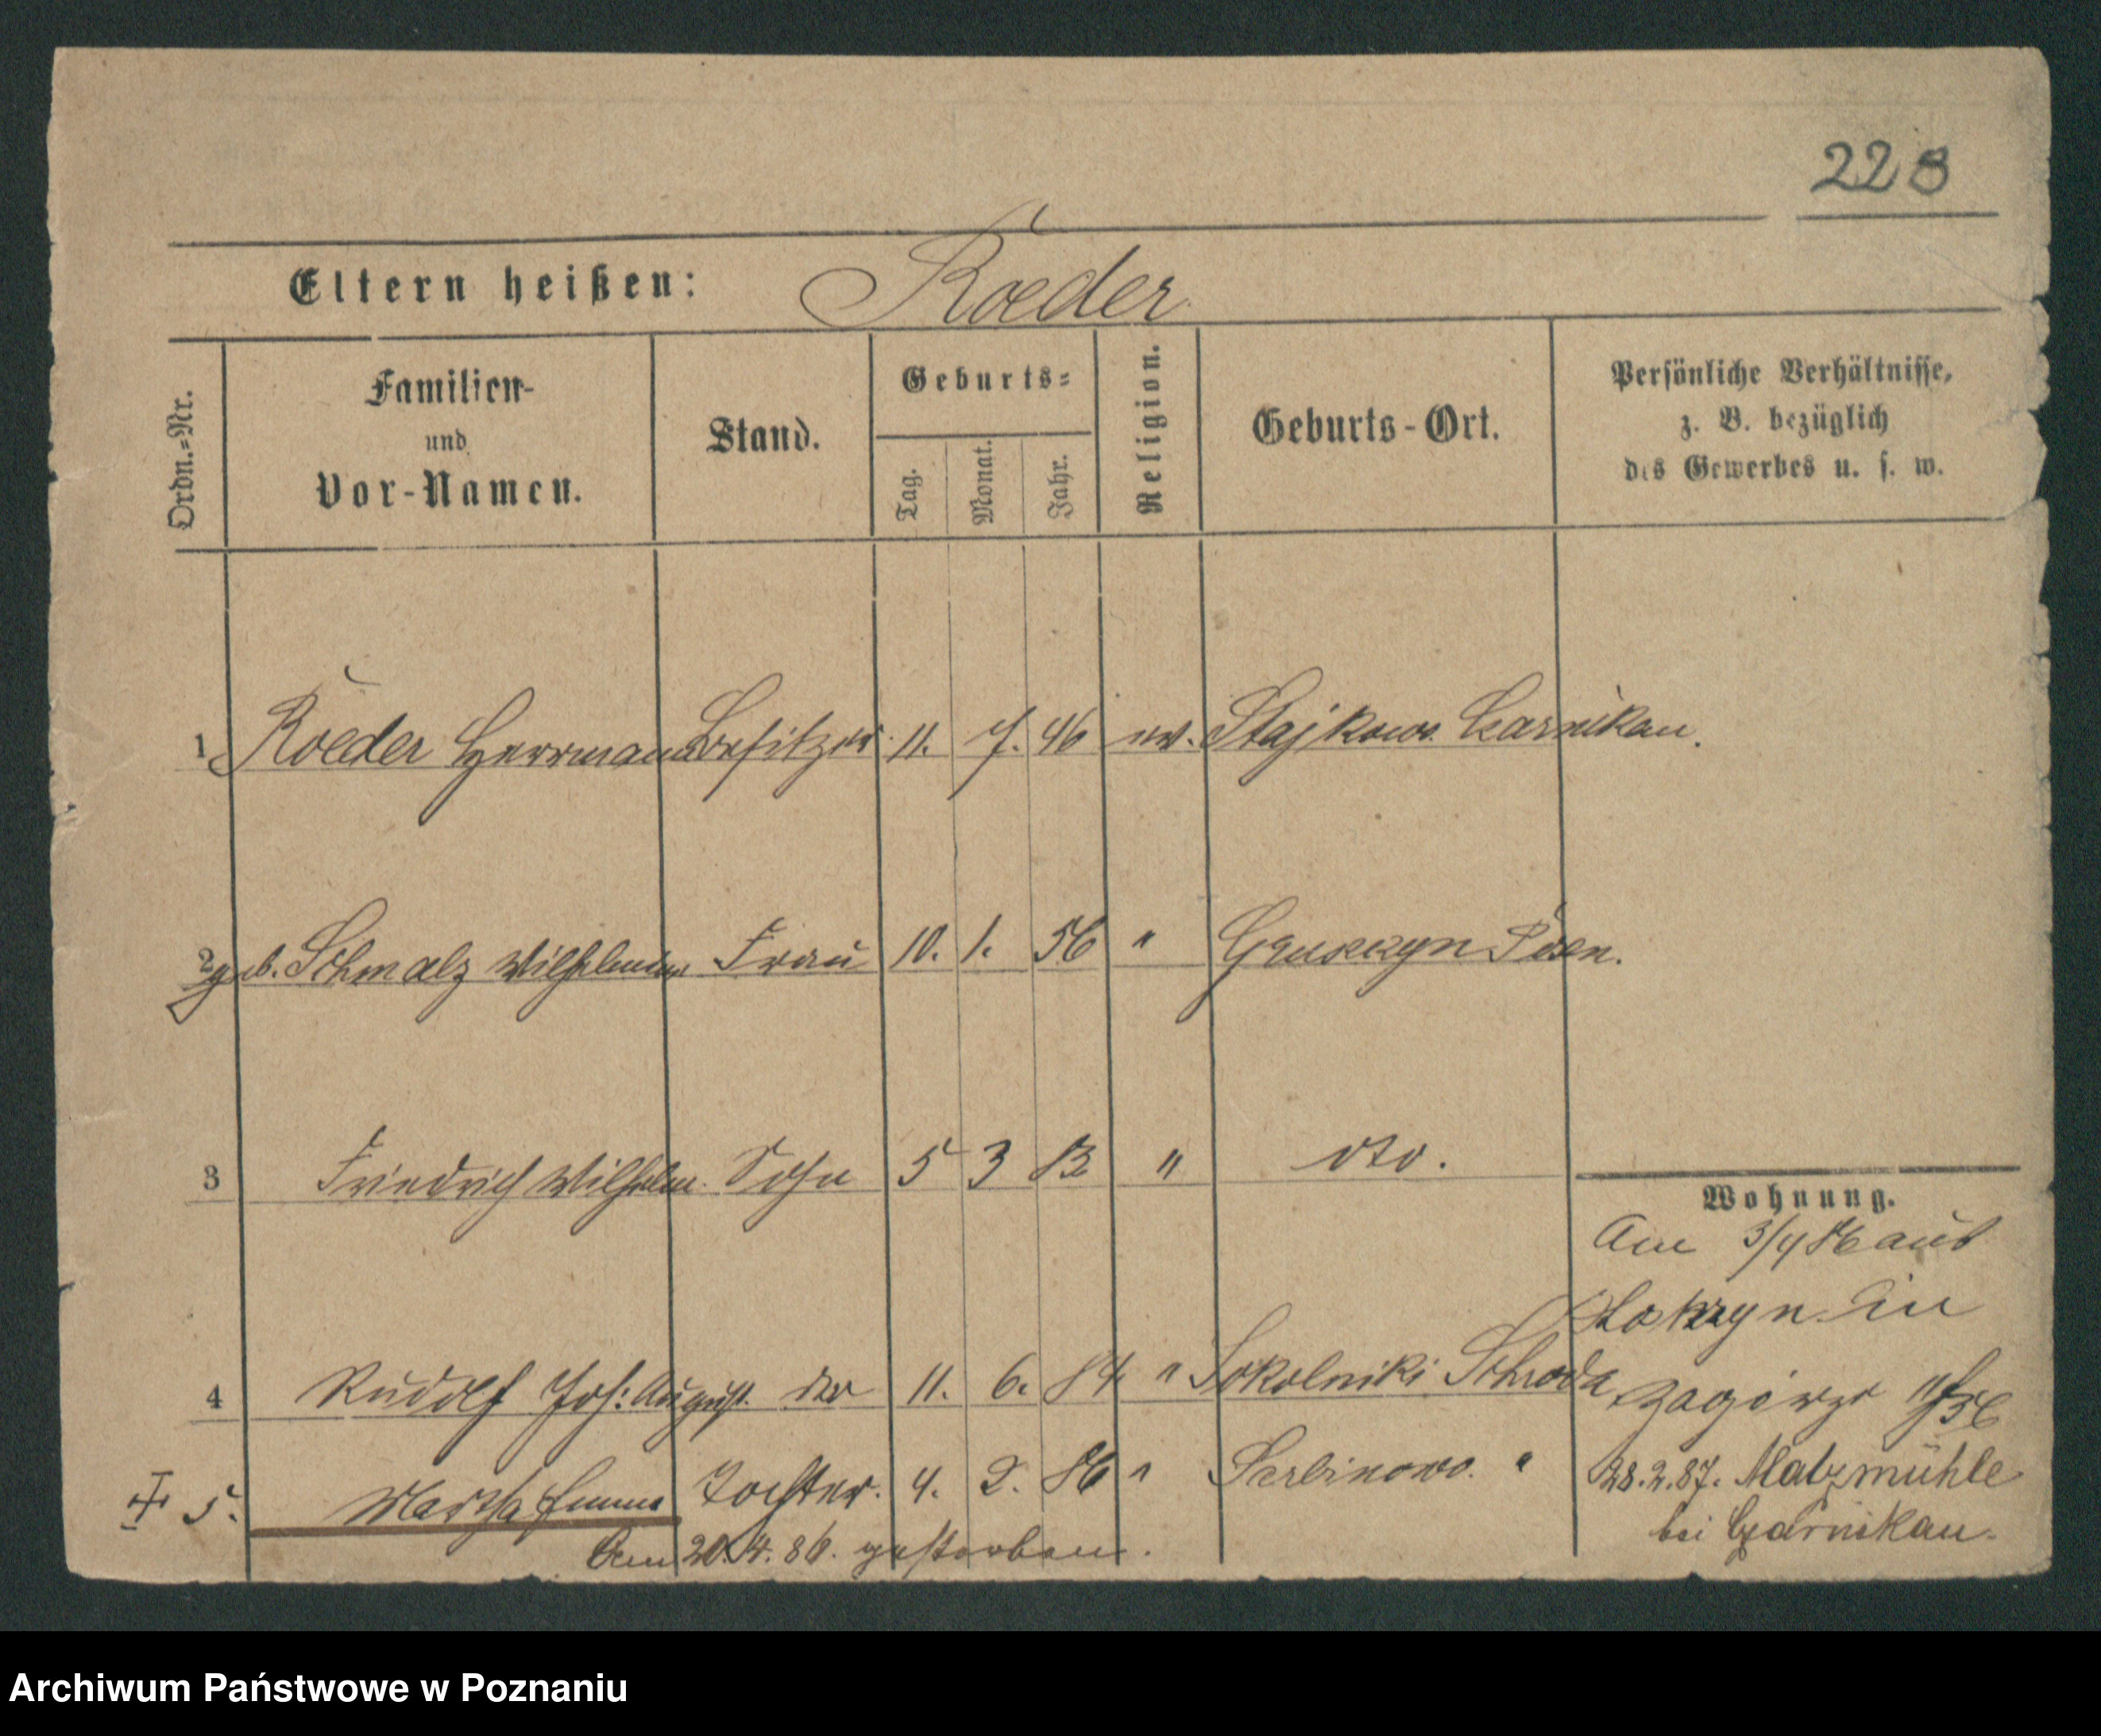 228
Eltern heißen: Roeder
Ordn.=Nr.
Familien-
und
Vor-Namen.
Stand.
Geburts=
Tag.
Monat.
Jahr.
Religion.
Geburts-Ort.
Persönliche Verhältnisse,
z. B. bezüglich
des Gewerbes u. s. w.
1 Roeder Herrmann Besitzer 11. 7. 46 ev. Stajkowo Czarnikau.
2 geb. Schmalz Wilhelmine Frau 10. 1. 56 " Posen.
3 Friedrich Wilhelm. Sohn 5 3 " dto.
Wohnung.
Am 3/4 86 aus
in
4 Rudolf Joh: August der 11. 6. 84 " Sokolniki Schroda
Zagórze
5. Martha Emma Tochter. 4. 2. 86 " "
28.2.87. Malzmühle
bei Czarnikau.
Am 20.4.86. gestorben.
Archiwum Państwowe w Poznaniu